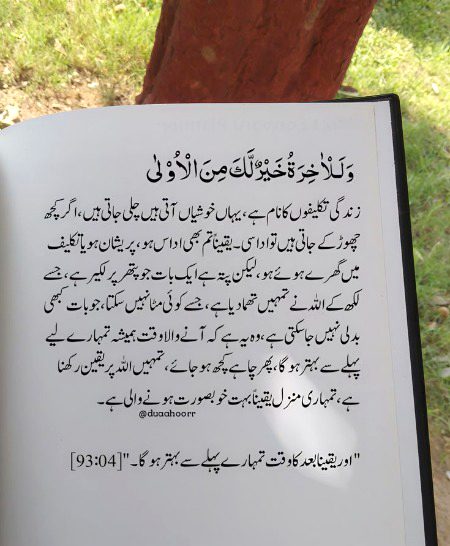 وَلَلْاٰخِرَةُ خَيْرٌ لَّكَ مِنَ الْاُوْلٰى
زندگی تکلیفوں کا نام ہے، یہاں خوشیاں آتی ہیں چلی جاتی ہیں، اگر کچھ
چھوڑ کے جاتی ہیں تو اداسی۔ یقیناً تم بھی اداس ہو، پریشان ہو یا تکلیف
میں گھرے ہوئے ہو، لیکن پتہ ہے ایک بات جو پتھر پر لکیر ہے، جسے
لکھ کے اللہ نے تمہیں تھما دیا ہے، جسے کوئی مٹا نہیں سکتا، جو بات کبھی
بدلی نہیں جا سکتی ہے، وہ یہ ہے کہ آنے والا وقت ہمیشہ تمہارے لیے
پہلے سے بہتر ہو گا، پھر چاہے کچھ ہو جائے، تمہیں اللہ پر یقین رکھنا
ہے، تمہاری منزل یقیناً بہت خوبصورت ہونے والی ہے۔
@duaahoorr
"اور یقینا بعد کا وقت تمہارے پہلے سے بہتر ہو گا۔"[93:04]